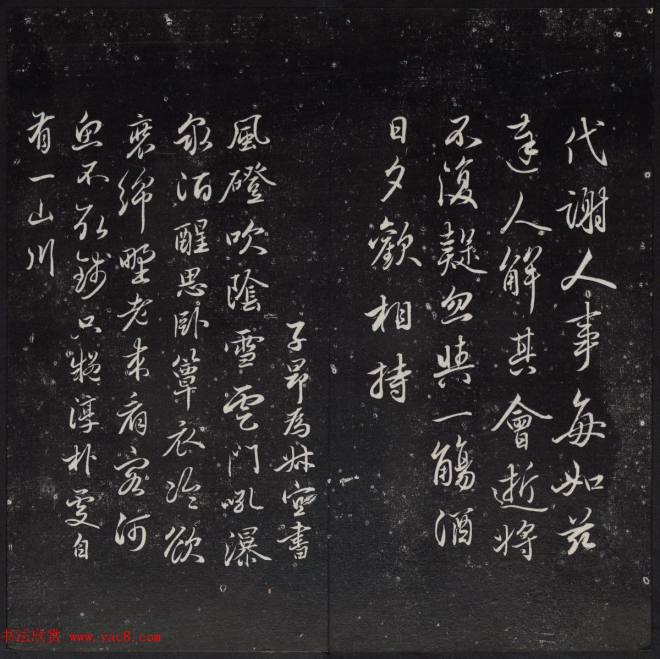 代謝人事每如茲
達人解其會逝將
不復疑忽與一觴酒
日夕歡相持
子昂為書
風磴吹陰雪雲門吼瀑
泉酒醒思臥簟衣冷欲
裝綿野老來看客河
魚不取錢只疑淳朴處自
有一山川
书法欣赏 www.yac8.com